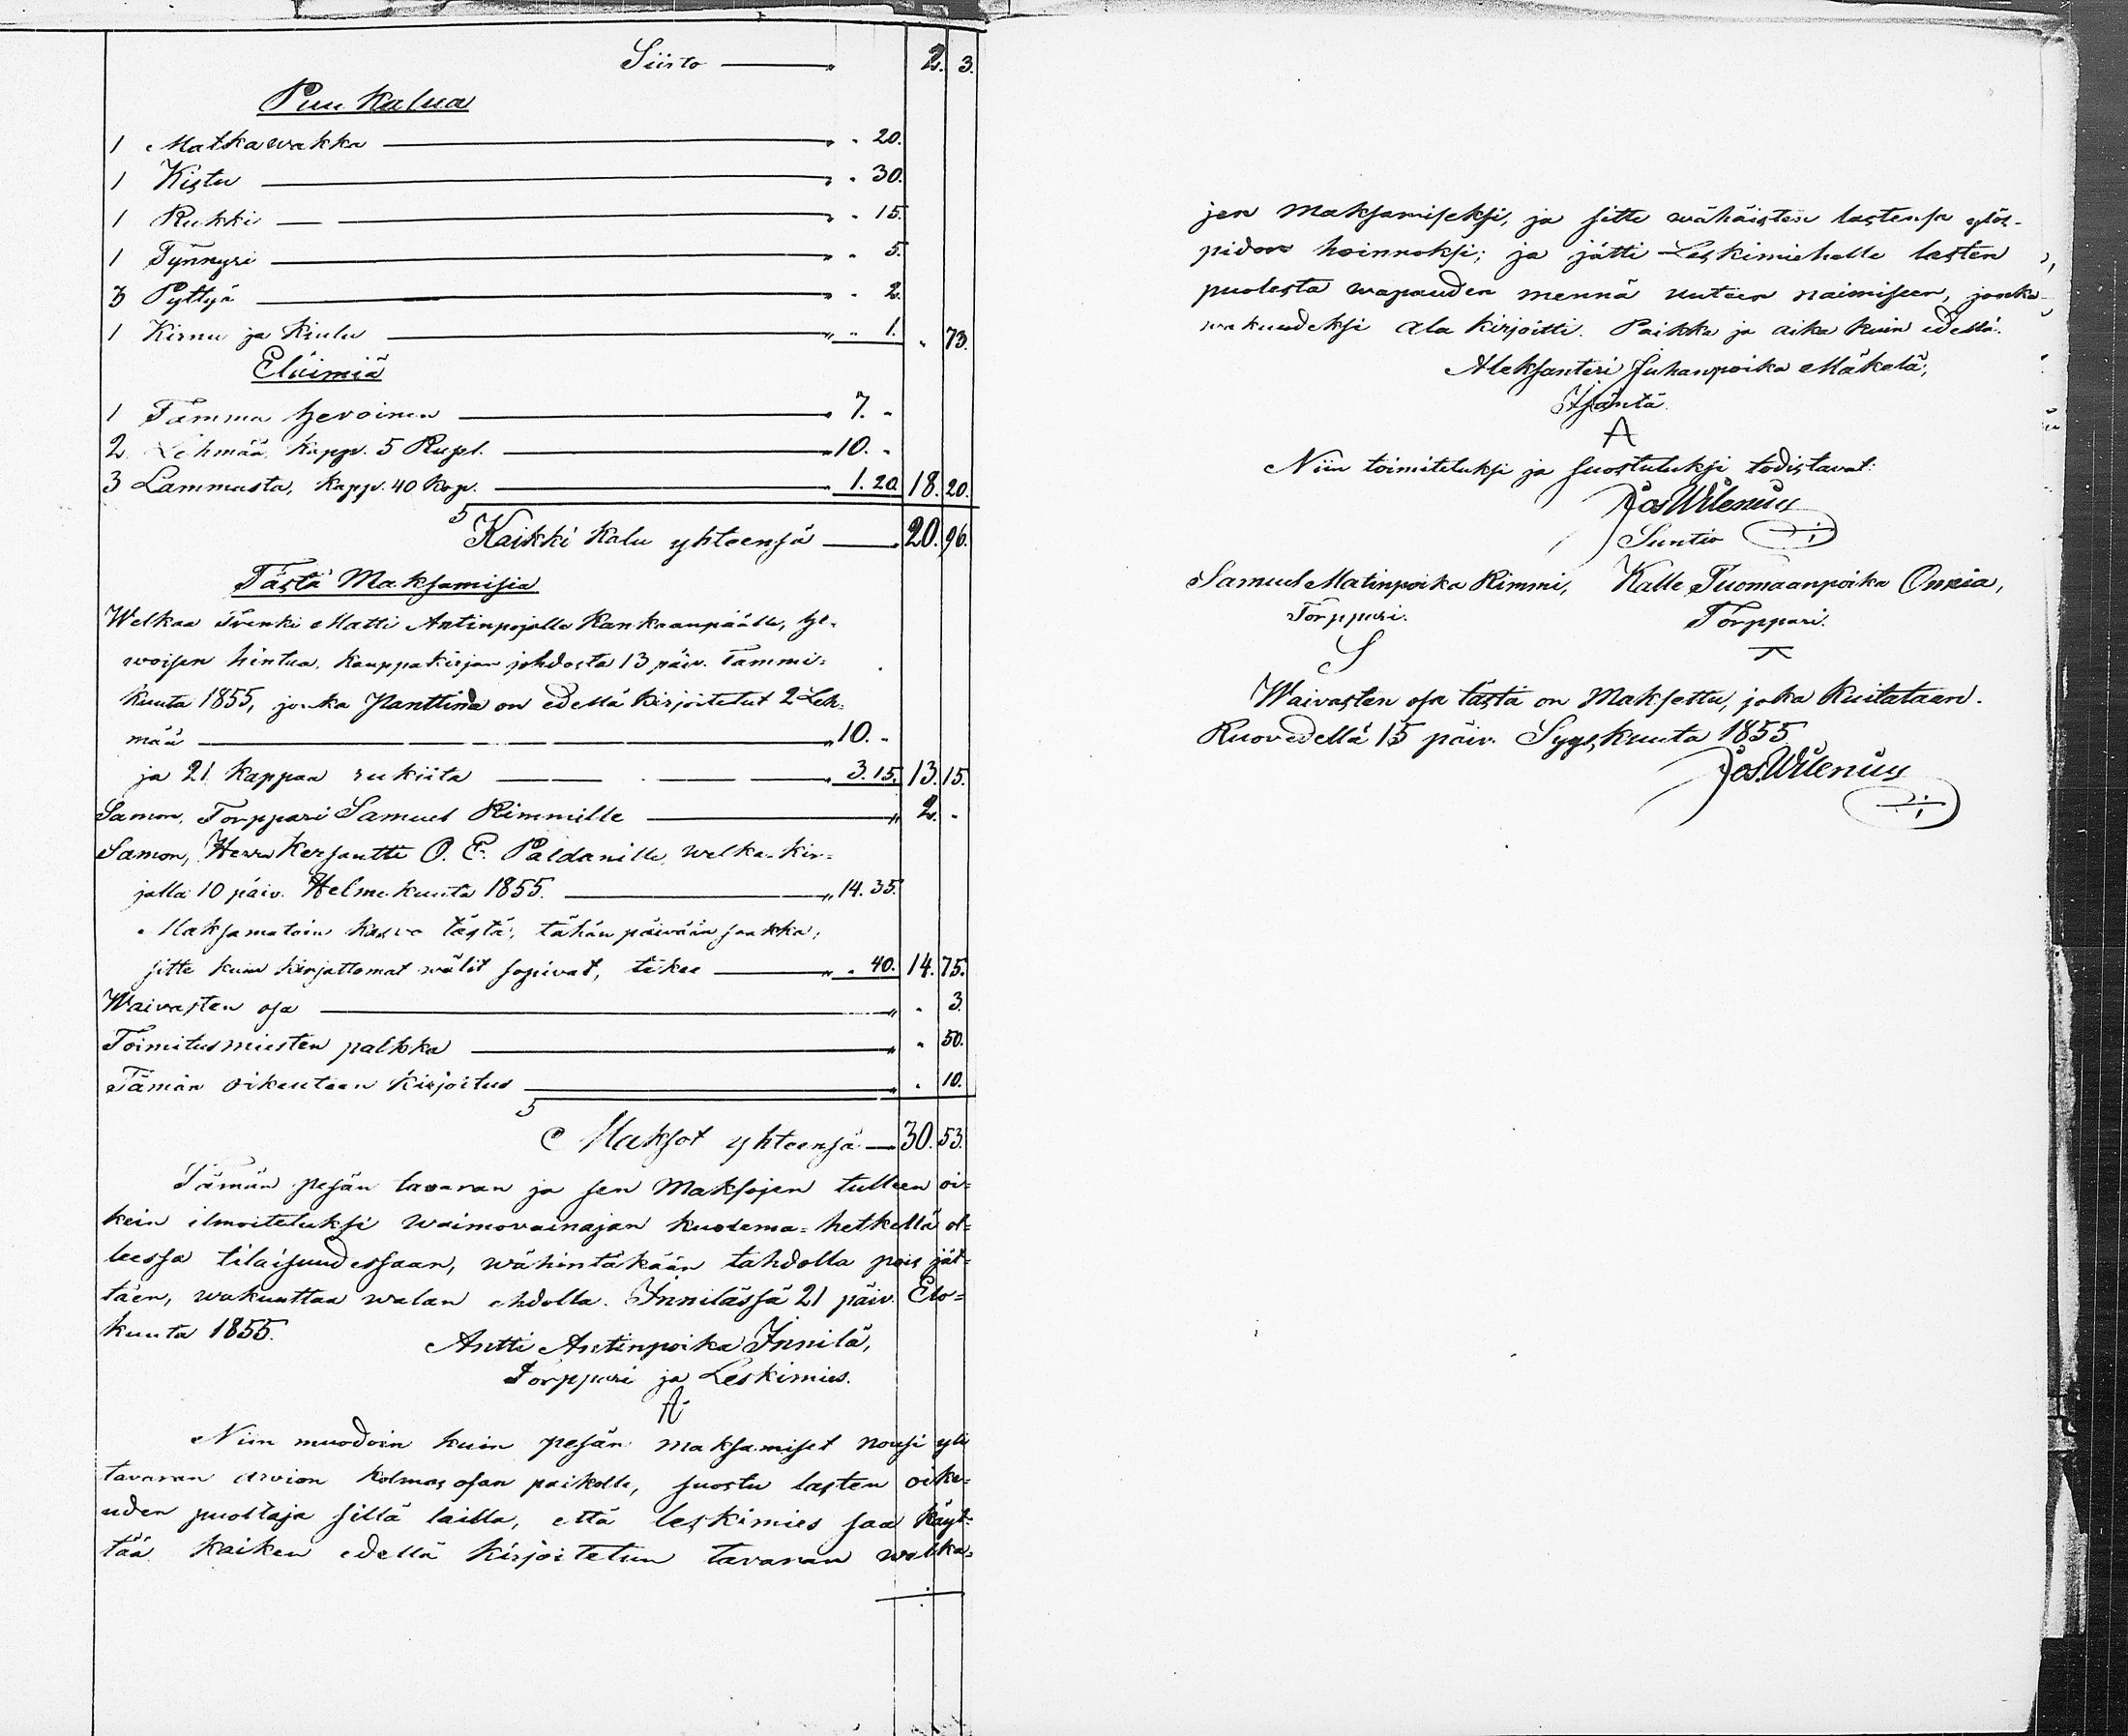 Siirto — " 2. 3.
Puu Kalua
1 Matkawakka — " " 20.
1 Kistu — " " 30.
1 Rukki — " " 15.
1 Tynnyri — " " 5.
3 Pyttyä — " " 2.
1 Kirnu ja Kiulu — " " 1. " 73.
Eläimiä
1 Tamma hevoinen — " 7. "
2 Lehmää, kapp. 5 Rupl. — " 10. "
3 Lammasta, kapp. 40 kop. — " 1.20. 18. 20.
Kaikki kalu yhteensä — 20. 96.
Tästä Maksamisia
Welkaa Trenki Matti Antinpojalle Kankaanpäälle, he-
woisen hintua, kauppakirjan johdosta 13 päiv. Tammi=
kuuta 1855, jonka Panttina on edellä kirjoitetut 2 Leh=
mää — " 10. "
ja 21 kappaa rukiita — " 3.15. 13. 15.
Samon, Torppari Samuel Rimmille — " 2. "
Samon, Herra Kersantti O. E. Paldanille, welka-kir=
jalla 10 päiv. Helmekuuta 1855. — " 14.35.
Maksamatoin kasvo tästä, tähän päivään saakka,
sitte kuin kirjattomat wälit sopivat, tekee — " " 40. 14. 75.
Waivasten osa — " " 3.
Toimitusmiesten palkka — " " 50.
Tämän oikeuteen kirjoitus — " " 10.
Maksot yhteensä — 30. 53.
Tämän pesän tavaran ja sen Maksojen tulleen oi=
kein ilmoiteluksi waimovainajan kuolema=hetkellä ol=
leessa tilaisuudessaan, wähintäkään tahdolla pois jät=
täen, wakuuttaa walan ehdolla. Innilässä 21 päiv. Elo=
kuuta 1855.
Antti Antinpoika Innilä,
Torppari ja Leskimies.
A
Niin muodoin kuin pesän maksamiset nousi yli
tavaran arvion kolmas osan paikolle, suostu lasten oike=
uden puoltaja sillä lailla, että leskimies saa käyt=
tää kaiken edellä kirjoitetun tavaran welka=
jen maksamiseksi, ja sitte wähäisten lastensa ylös-
pidon hoinnoksi; ja jätti Leskimiehelle lasten
puolesta wapauden mennä uuteen naimiseen, jonka
wakuudeksi ala kirjoitti. Paikka ja aika kuin edellä.
Aleksanteri Juhanpoika Mäkelä,
Isäntä.
A
Niin toimiteluksi ja suostuluksi todistavat:
Jos Wilenius
Suntio
Samuel Matinpoika Rimmi, Kalle Tuomaanpoika Onnia,
Torppari. Torppari.
S
Waivasten osa tästä on Maksettu, joka kuitataan.
Ruovedellä 15 päiv. Syyskuuta 1855
Jos. Wilenius